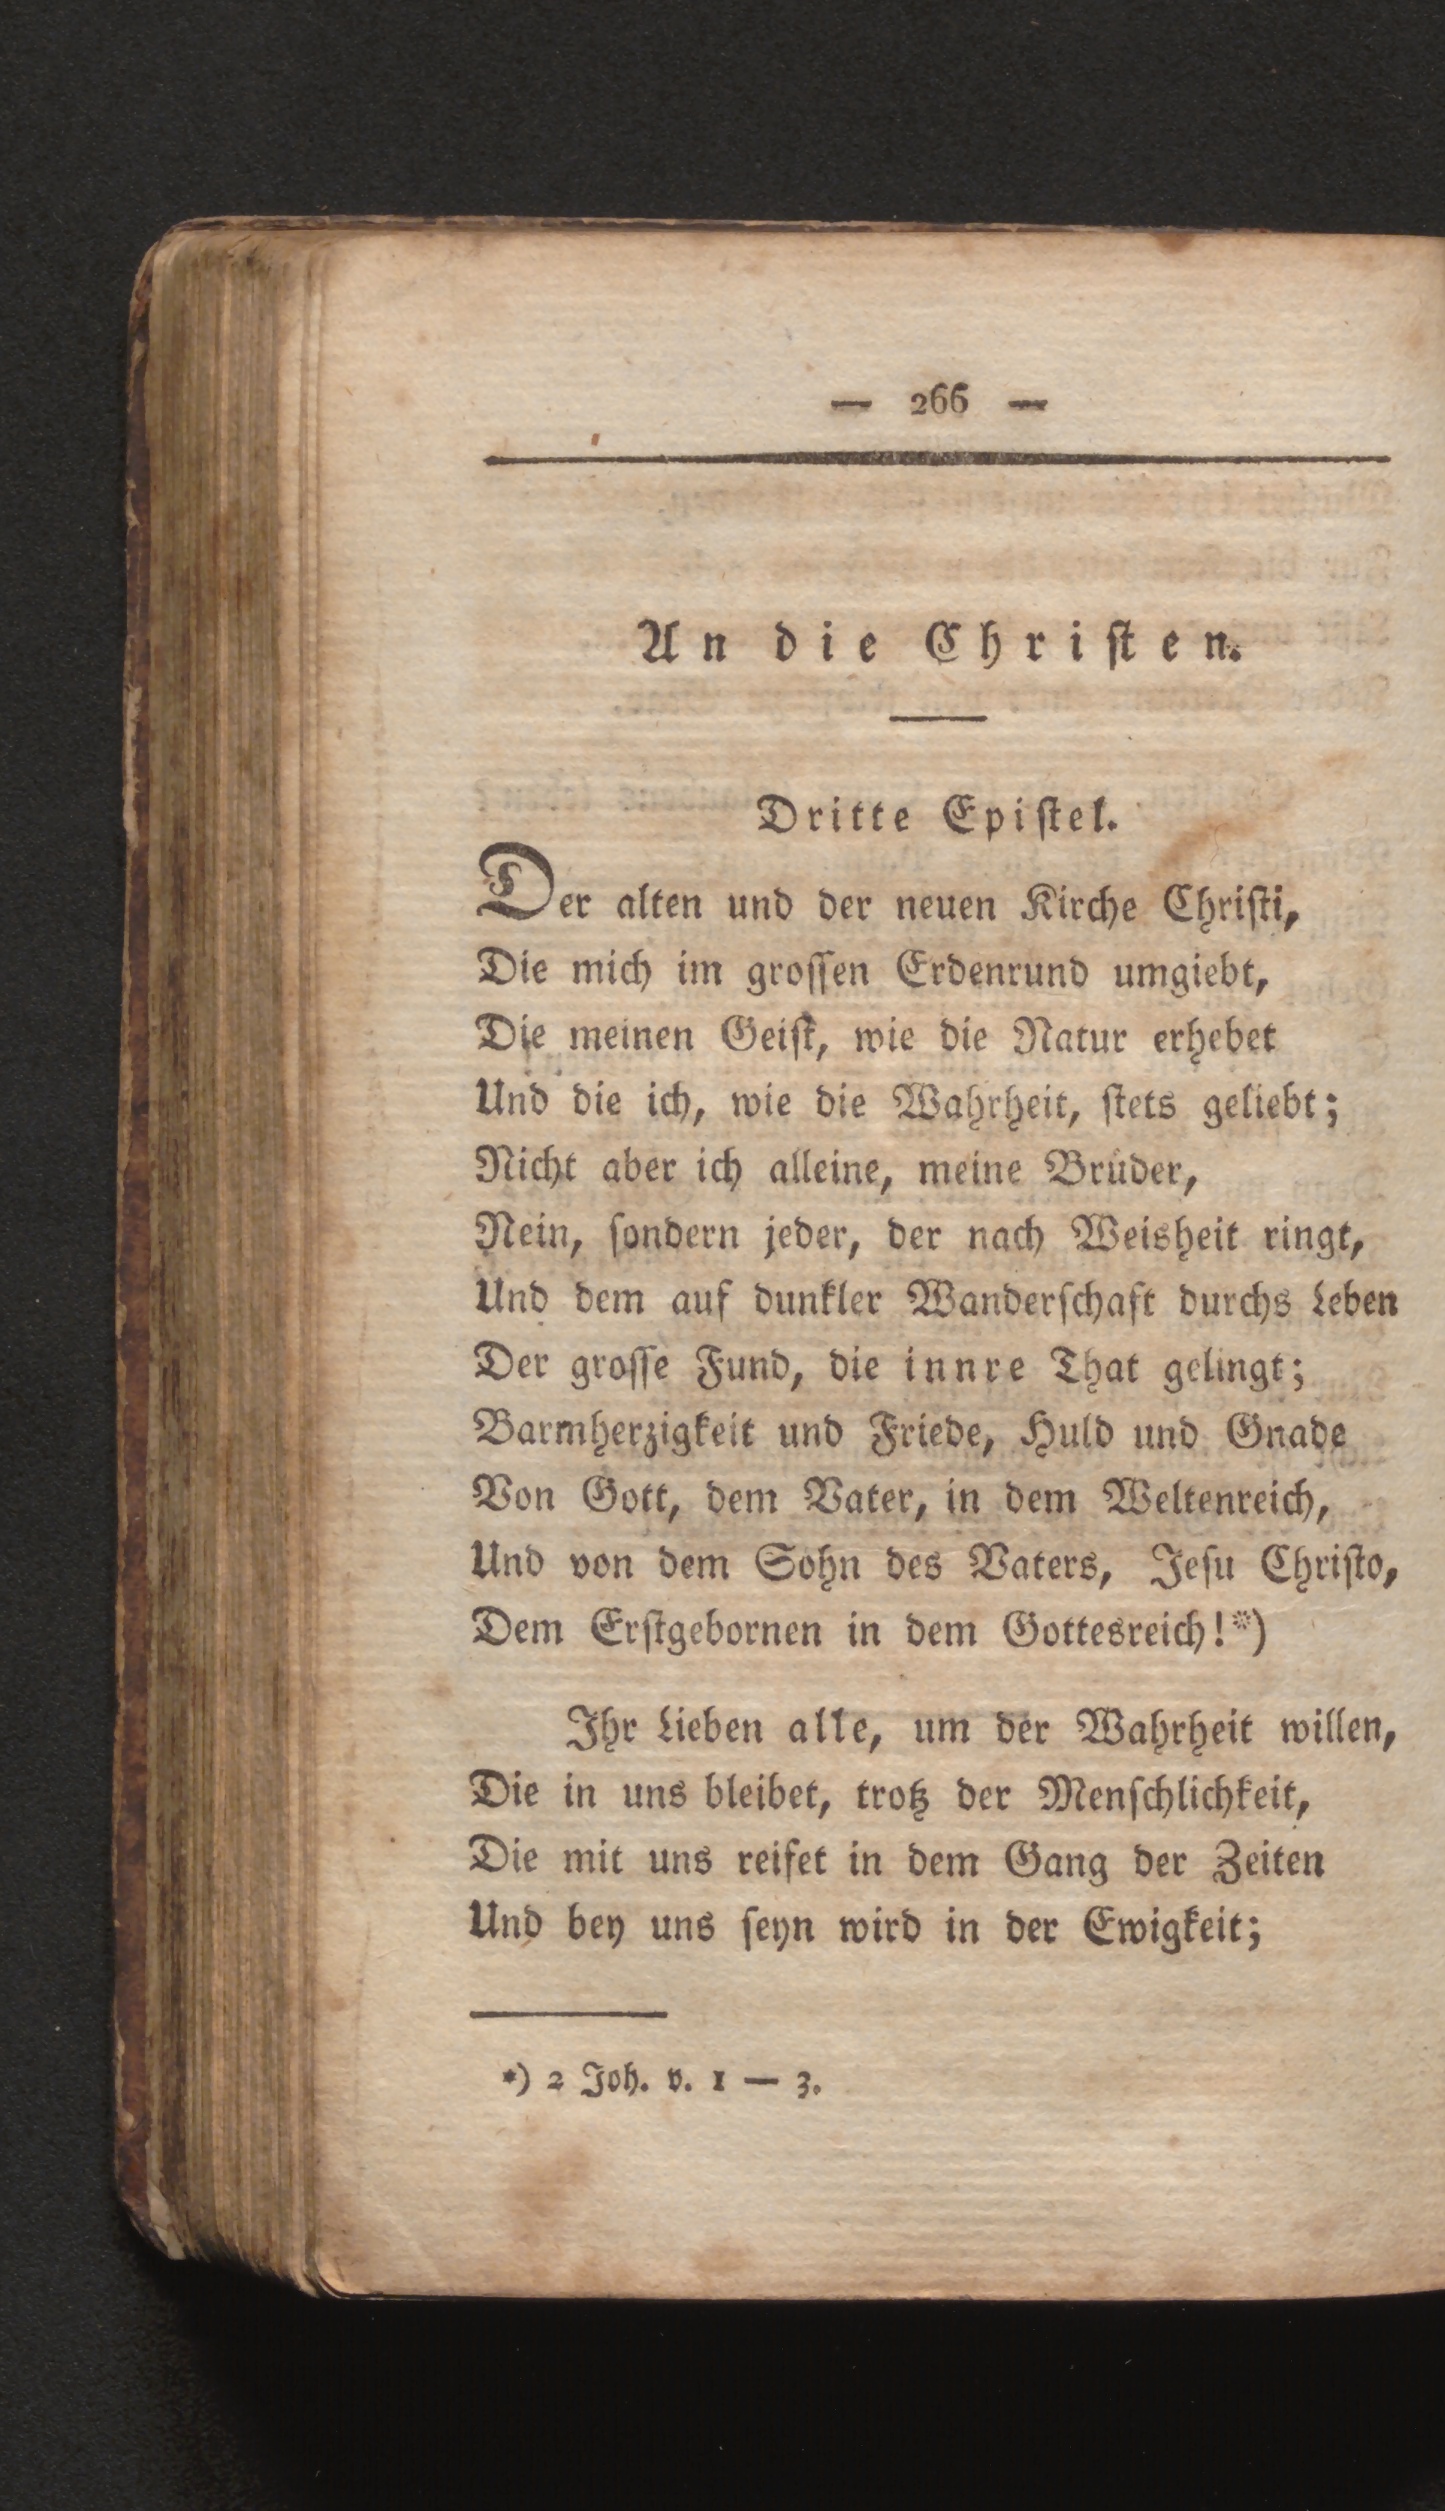 — 266 —
An die Chriſten.
Dritte Epiſtel.
Der alten und der neuen Kirche Chriſti,
Die mich im groſſen Erdenrund umgiebt,
Die meinen Geiſt, wie die Natur erhebet
Und die ich, wie die Wahrheit, ſtets geliebt;
Nicht aber ich alleine, meine Brüder,
Nein, ſondern jeder, der nach Weisheit ringt,
Und dem auf dunkler Wanderſchaft durchs Leben
Der groſſe Fund, die innre That gelingt;
Barmherzigkeit und Friede, Huld und Gnade
Von Gott, dem Vater, in dem Weltenreich,
Und von dem Sohn des Vaters, Jeſu Chriſto,
Dem Erſtgebornen in dem Gottesreich!*)
Ihr Lieben alle, um der Wahrheit willen,
Die in uns bleibet, trotz der Menſchlichkeit,
Die mit uns reifet in dem Gang der Zeiten
Und bey uns ſeyn wird in der Ewigkeit;
*) 2 Joh. v. 1 — 3.